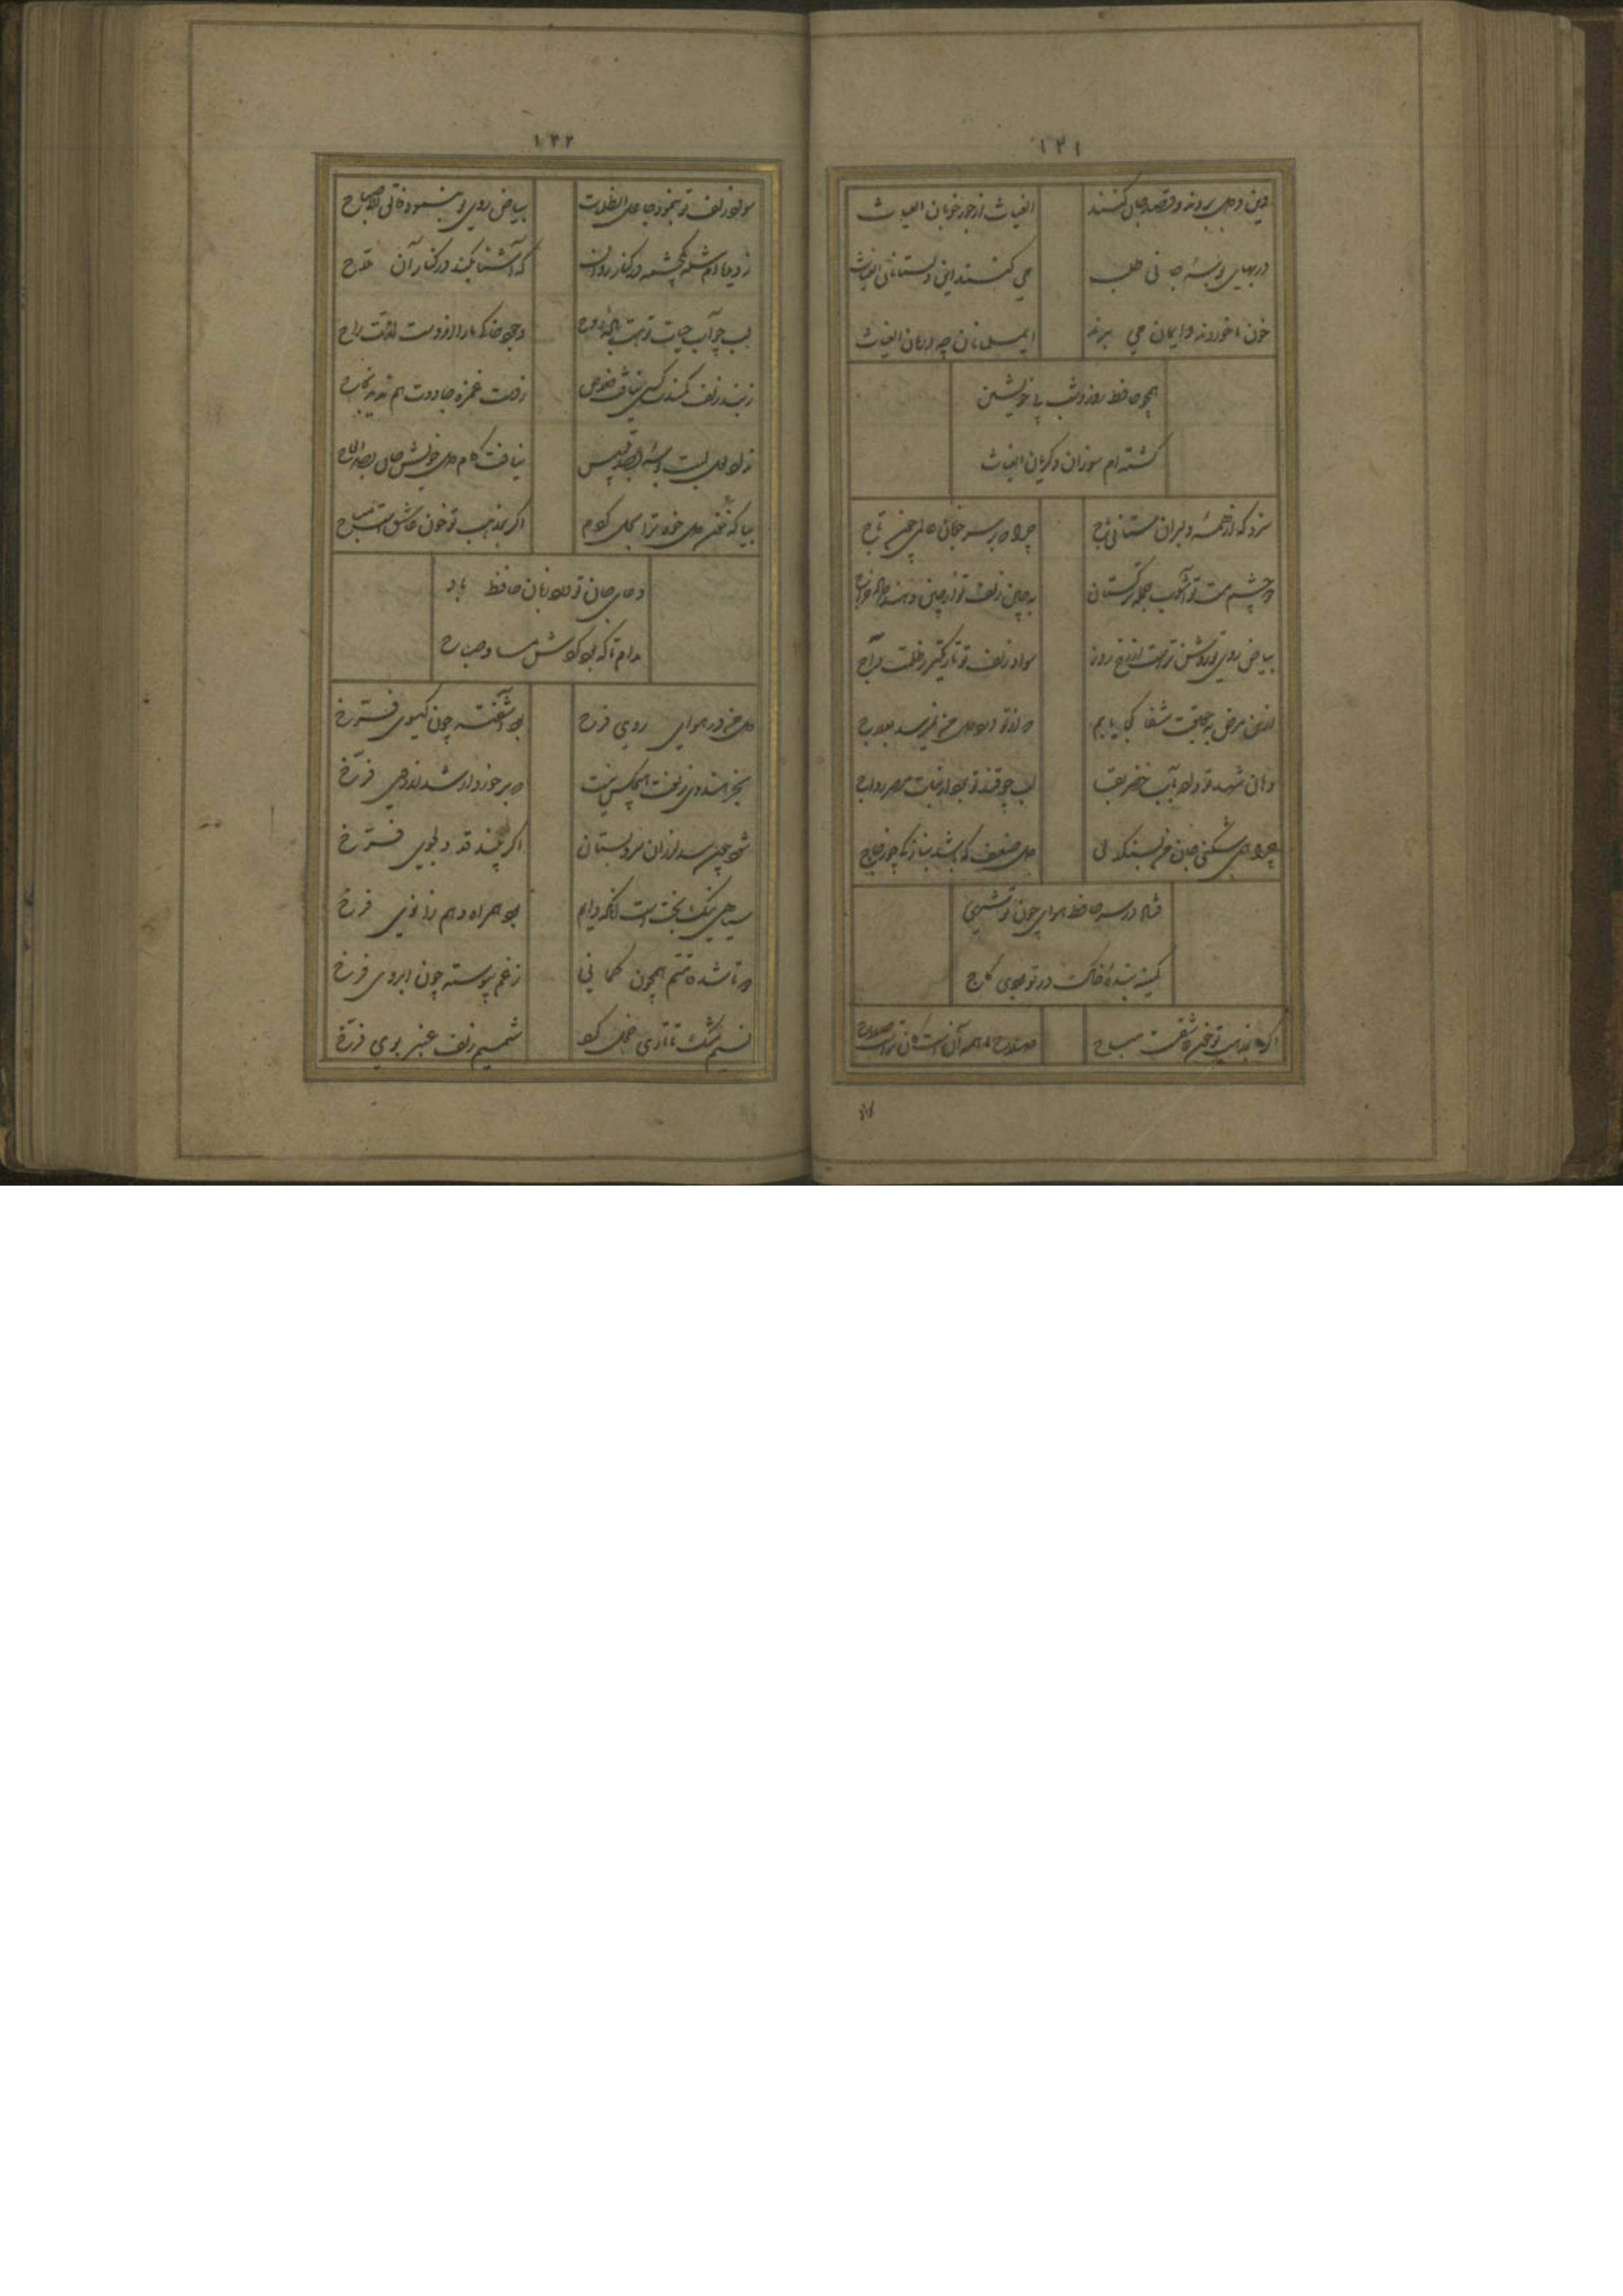 ۱۲۱
دین و دل بردند و قصد جان کنند
الغیاث از جور خوبان الغیاث
در بهای بوسهٔ جانی طلب
می کنند این دلستانان الغیاث
خون ما خوردند و ایمان می برند
ای مسلمانان چه درمان الغیاث
همچو حافظ روز و شب بی خویشتن
گشته ام سوزان و گریان الغیاث
سزد که از همه دلبران ستانی باج
چرا که بر سر خوبان عالمی چون تاج
دو چشم مست تو آشوب جمله ترکستان
به چین زلف تو از چین و هند داده خراج
بیاض روی تو روشن تر است از رخ روز
سواد زلف تو تاریکتر ز ظلمت داج
ازین مرض به حقیقت شفا کجا یابم
که از تو درد دل من نمیرسد بعلاج
دهان شهد تو داده بآب خضر بقا
لب چو قند تو برد از نبات مصر رواج
چرا همی شکنی جان من ز سنگدلی
دل ضعیف که باشد بنازکی چو زجاج
فتاد در سر حافظ هوای چون تو شهی
کمینه بندهٔ خاک در تو بودی کاج
اگر بمذهب تو خون عاشق است مباح
صلاح ما همه آن است کان تراست صلاح
۱۲۲
سواد زلف تو بنمود جاعل الظلمات
بیاض روی تو بنمود فالق الاصباح
ز دیده ام شده یک چشمه در کنار روان
که آشنا نکند در کنار آن ملاح
لب چو آب حیات تو هست قوت روح
وجود خاکی ما را ازوست لذت راح
ز بند زلف کمندت کسی نیافت خلاص
بیا که خون دل خود ترا بحل کردم
اگر بمذهب تو خون عاشق است مباح
دعای جان تو ورد زبان حافظ باد
مدام تا که بود گردش مسا و صباح
دل من در هوای روی فرخ
بود آشفته چون گیسوی فرخ
بجز هندوی زلفت هیچکس نیست
که برخوردار شد از روی فرخ
شود چون بید لرزان سرو بستان
اگر بیند قد دلجوی فرخ
سیاهی نیکبخت است آنکه دایم
بود همراه و هم زانوی فرخ
دوتا شد قامتم همچون کمانی
ز غم پیوسته چون ابروی فرخ
نسیم مشک تاتاری خجل کرد
شمیم زلف عنبر بوی فرخ